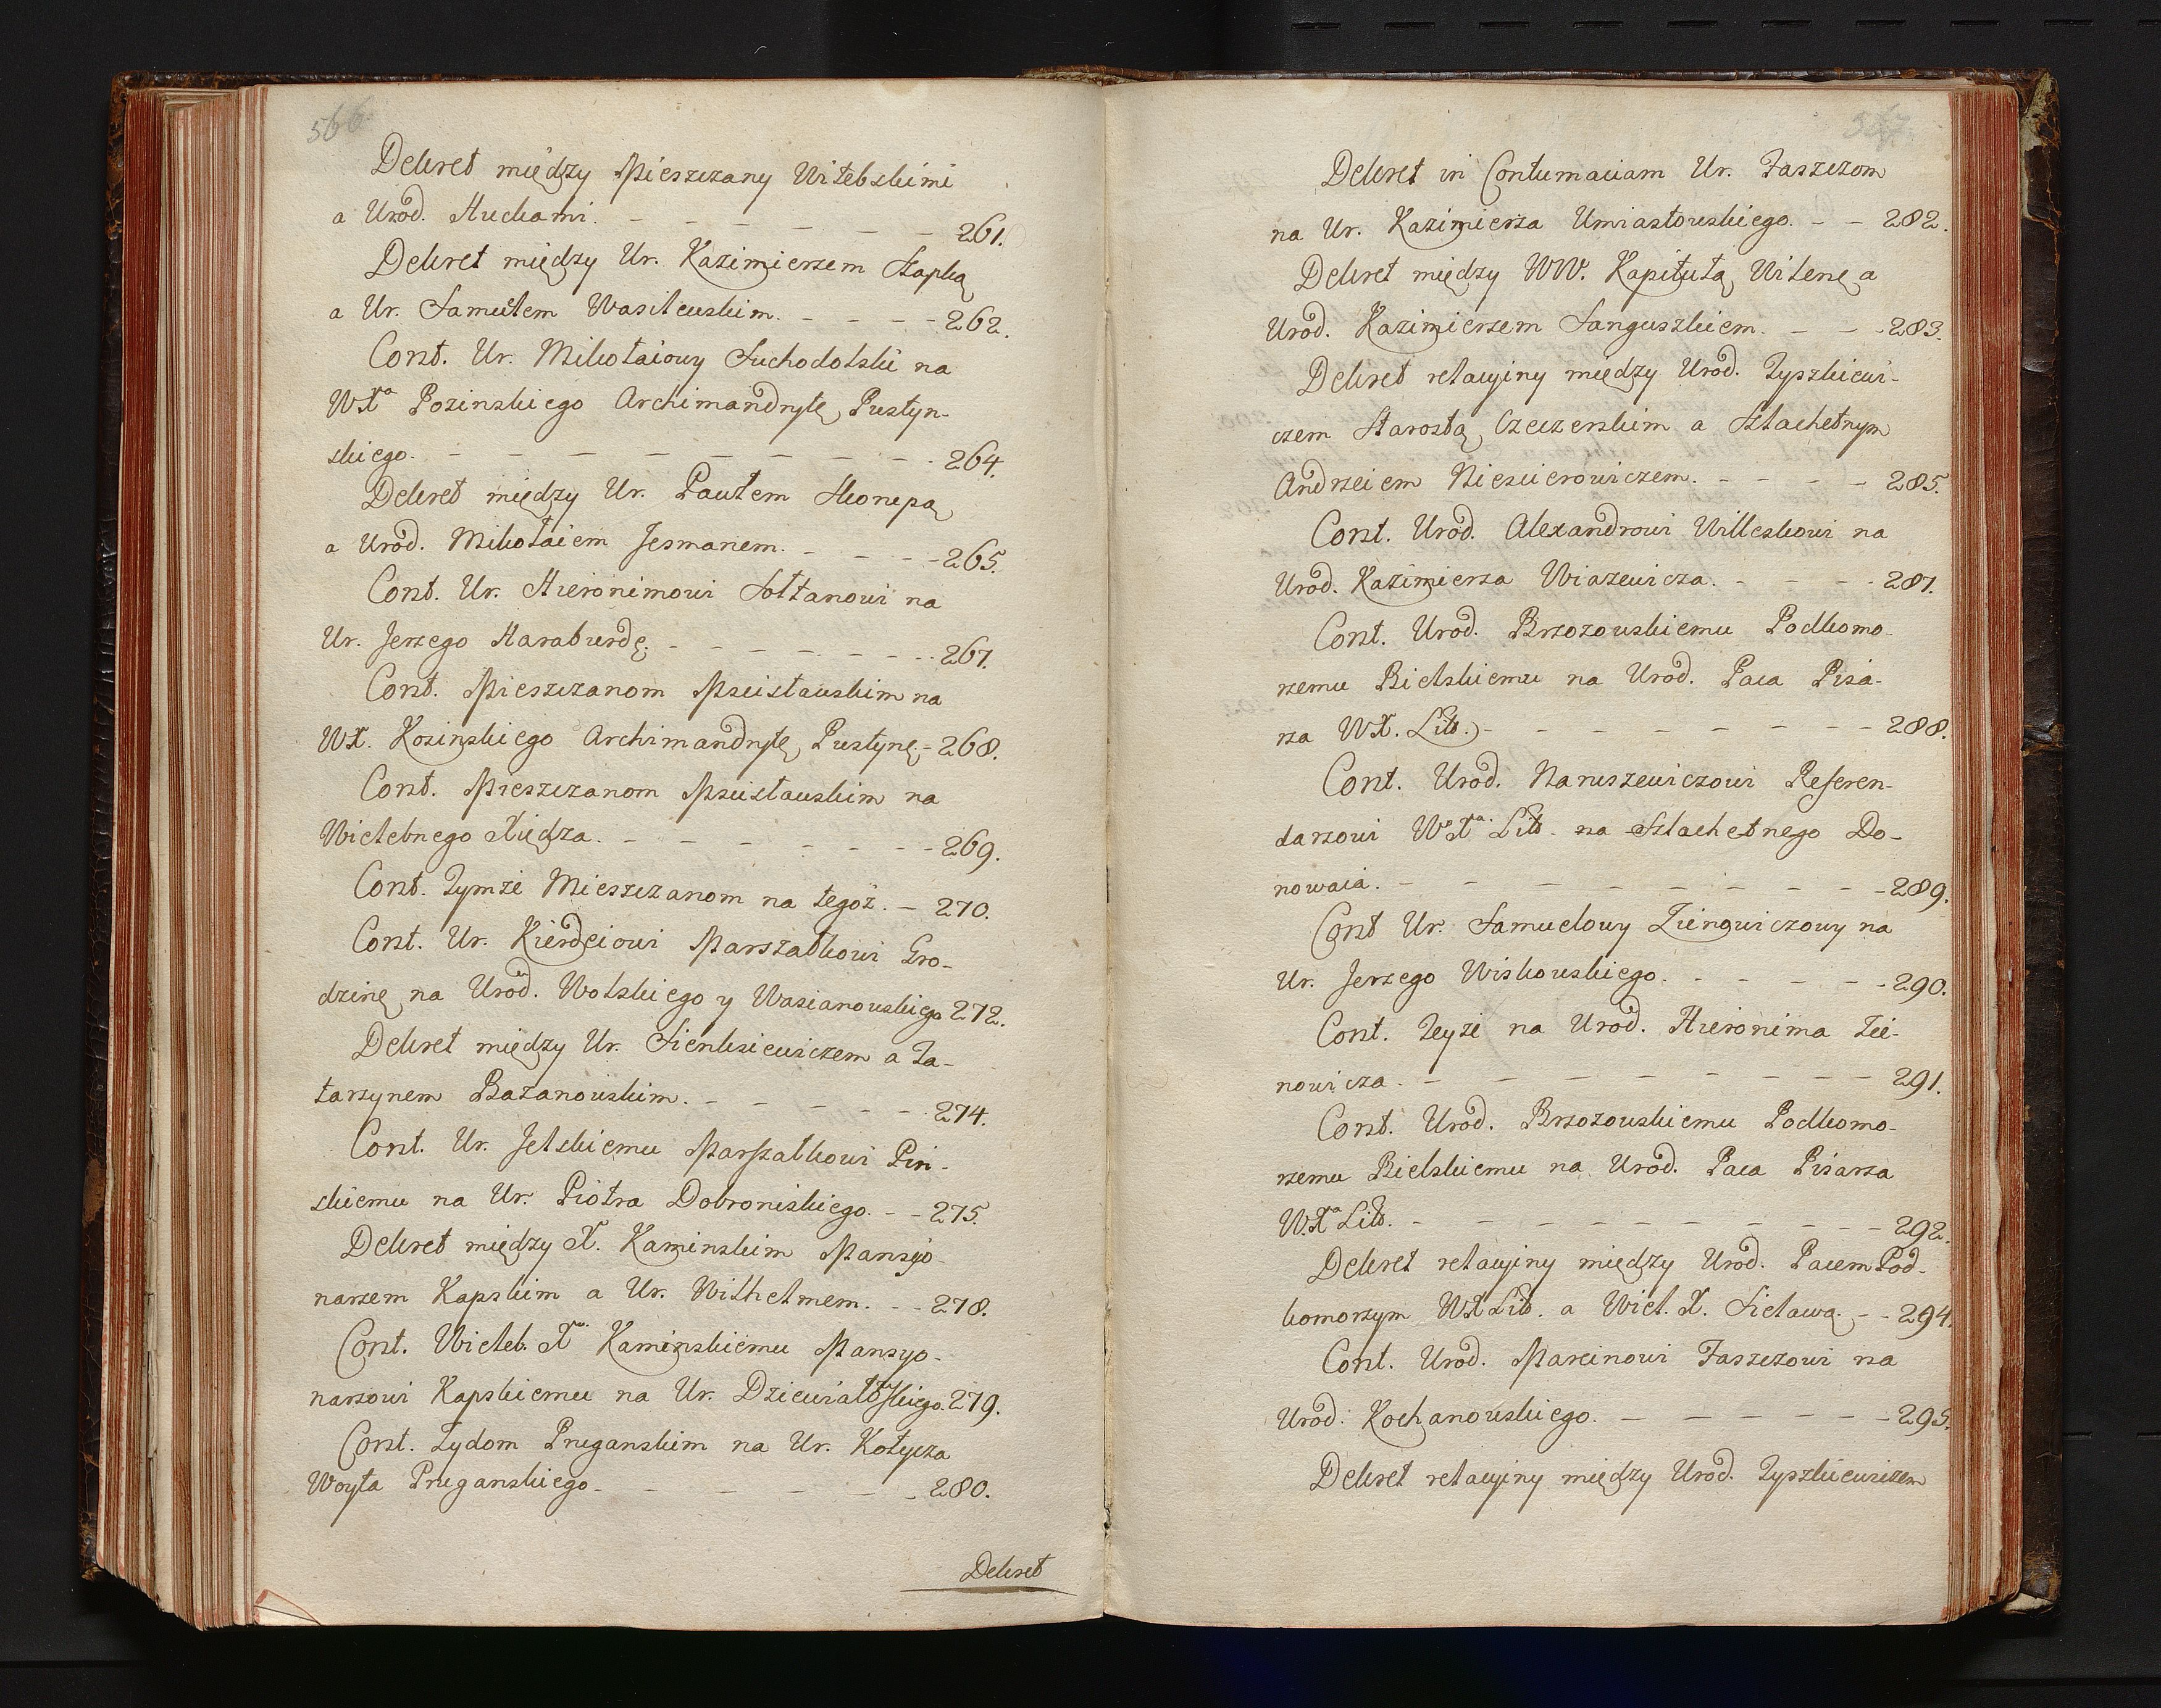 566
Dekret między Mieszczany Witebskimi
a Urod. Huckami. - - - - - - 261.
Dekret między Ur. Kazimierzem Szapką
a Ur. Samułem Wasilewskim. - - - - 262.
Cont. Ur. Mikołaiowy Suchodolski na
WXa Pozinskiego Archimandrytę Pustyn-
skiego. - - - - - - - - - 264.
Dekret między Ur. Pawłem Skorupą
a Urod. Mikołaiem Jesmanem. - - - - 265.
Cont. Ur. Hieronimowi Sołtanowi na
Ur. Jerzego Haraburdę. - - - - - - - 267.
Cont. Mieszczanom Mscisławskim na
WX. Kozinskiego Archimandrytę Pustynę - 268.
Cont. Mieszczanom Mscisławskim na
Wielebnego Xiędza. - - - - - - - 269.
Cont. Tymże Mieszczanom na tegoż. - 270.
Cont. Ur. Kierdeiowi Marszałkowi Gro-
dzinę na Urod. Wolskiego y Wasianowskiego 272.
Dekret między Ur. Sienkiewiczem a Ta-
tarzynem Bazanowskim. - - - - - 274.
Cont. Ur. Jelskiemu Marszałkowi Pin-
skiemu na Ur. Piotra Dobroniskiego. - - 275.
Dekret między X. Kaminskim Mansyo-
narzem Kapskim a Ur. Wilhelmem. - - 278.
Cont. Wieleb. Xu Kaminskiemu Mansyo-
narzowi Kapskiemu na Ur. Dziewiałtowskiego. 279.
Cont. Żydom Prugańskim na Ur. Kotycza
Woyta Prugańskiego - - - - - - 280.
Dekret
567.
Dekret in Contumaciam Ur. Taszczom
na Ur. Kazimierza Umiastowskiego. - - 282.
Dekret między WW. Kapitułą Wilenę a
Urod. Kazimierzem Sanguszkiem. - - - 283.
Dekret relacyiny między Urod. Tyszkiewi-
czem Starostą Czeczerskim a Szlachetnym
Andrzeiem Niescierowiczem. - - - - 285.
Cont. Urod. Alexandrowi Willeskowi na
Urod. Kazimierza Wiazewicza. - - - - 287.
Cont. Urod. Brzozowskiemu Podkomo-
rzemu Bielskiemu na Urod. Paca Pisa-
rza WX. Litt. - - - - - - - 288.
Cont. Urod. Naruszewiczowi Referen-
darzowi WoXa. Litt. na Szlachetnego Do-
nowaia. - - - - - - - - 289.
Cont Ur. Samuelowy Zienowiczowy na
Ur. Jerzego Wiskowskiego. - - - - - 290.
Cont. Teyże na Urod. Hieronima Zie-
nowicza. - - - - - - - - 291.
Cont. Urod. Brzozowskiemu Podkomo-
rzemu Bielskiemu na Urod. Paca Pisarza
W.Xa Litt. - - - - - - - - - 292.
Dekret relacyiny między Urod. Pacem Pod-
komorzym WX Litt. a Wiel. X. Sielawą. - - 294.
Cont. Urod. Marcinowi Taszczowi na
Urod. Kochanowskiego. - - - - - - 295.
Dekret relacyiny między Urod. Tyszkiewiczem